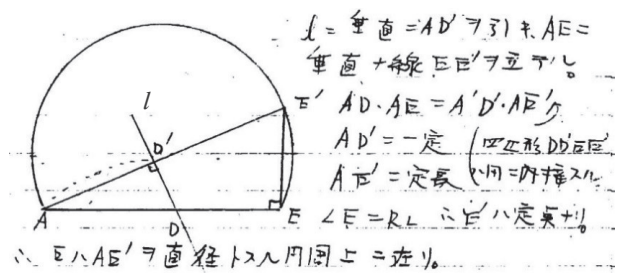 l = 垂直 = AD' ヲ引キ, AE =
垂直ナ線 EE' ヲ立テル。
AD・AE = A'D'・AE'
AD' = 一定 (四辺形 DD'EE'
AE' = 定長 ハ円ニ内接スル
∠E = R∠ ∴ E' ハ定点ナリ。
∴ E ハ AE' ヲ直径トスル円周上ニ在リ。
l
E'
D'
A
D
E